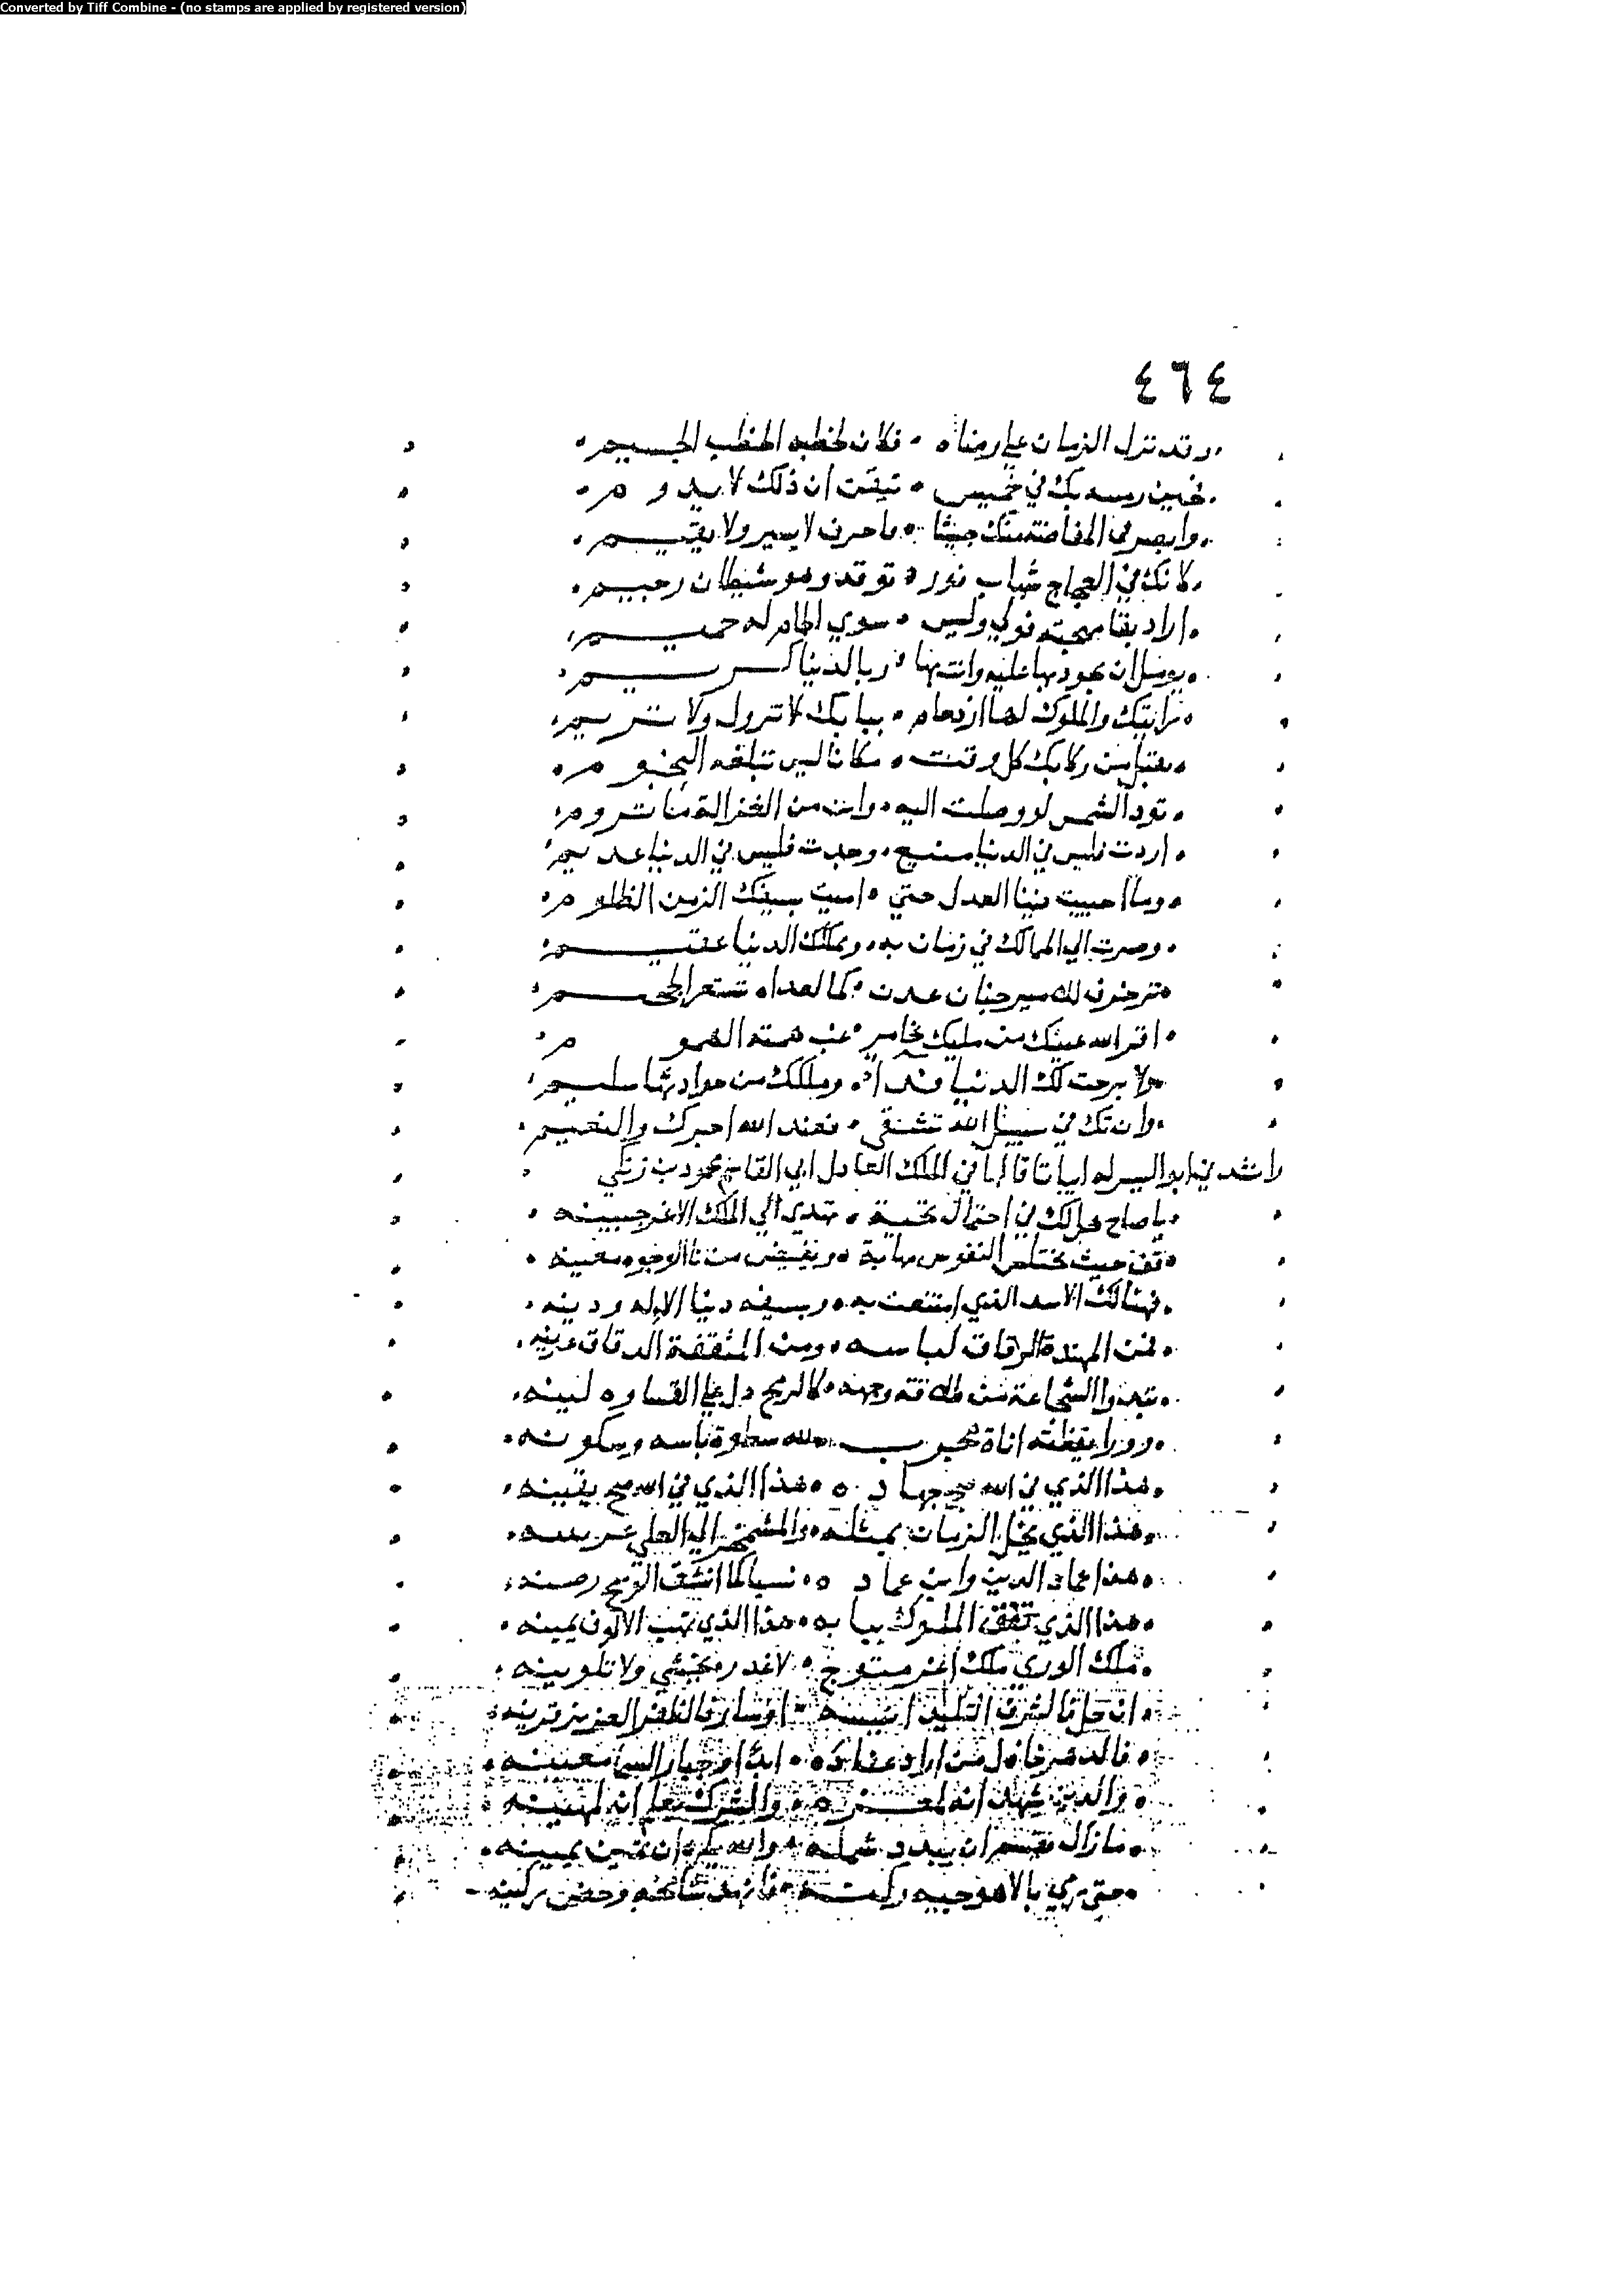 Converted by Tiff Combine - (no stamps are applied by registered version)
٤٦٤
وقد نزل الزمان على رضاه فكان لخطبه الخطب الجسيم
فحين رميته بك في خميس تيقنت ان ذلك لا يدوم
وابصر في المفاضة منك جيشا لا يسير ولا يقيم
كانك في العجاج شهاب نور توقد وهو شيطان رجيم
اراد بقا مهجته فولى وليس سوي الحمام له حميم
يومل ان يجود بها عليه وانت بها وبالدنيا كريم
رايتك والملوك لها ازدحام ببابك لا تزول ولا تريم
تقبل من ركابك كل وقت مكانا ليس تبلغه النجوم
تود الشمس لو وصلت اليه واين من الغزالة ما تروم
اردت فليس في الدنيا منيع وجدت فليس في الدنيا عديم
وما احييت فينا العدل حتي اميت بسيفك الزمن الظلوم
وصرت الي الممالك في زمان به وبملك الدنيا عقيم
تزخرف للامير جنان عدن كما لعداه تستعر الجحيم
اقر الله عينك من مليك تخامر غب همته الهموم
ولا برحت لك الدنيا فداء وملكك من حوادثها سليم
وان تك في سبيل الله تشقى فعند الله اجرك والنعيم
وانشدني ابو اليسر له ابياتا قالها في الملك العادل ابي القاسم محمود بن زنكي
يا صاح هل لك في احتمال تحية تهدى الي الملك الاغر جبينه
قف حيث تختلس النفوس مهابة ويفيض من ماء الوجوه معينه
فهنالك الاسد الذي امتنعت به وبسيفه دنيا الاله ودينه
فمن المهندة الرقاق لباسه ومن المثقفة الدقاق عرينه
تبدوا الشجاعة من طلاقة وجهه كالرمح دل على القساوة لينه
ووراء يقظته اناة مجرب لله سطوة باسه وسكونه
هذا الذي في الله صح جهاده هذا الذي في الله صح يقينه
هذا الذي بخل الزمان بمثله والمشمخر الي العلي عرنينه
هذا عماد الدين وابن عماده نسبا كما انشق الوشيج رصينه
هذا الذي تقف الملوك ببابه هذا الذي تهب الالوف يمينه
ملك الوري ملك اغر متوج لا غدره يخشي ولا تلوينه
ان حل فالشرف التليد انيسه او سار فالظفر العزيز قرينه
فالدهر خاذل من اراد عناده ابدا وجبار السما معينه
والدين يشهد انه لمعزه والشرك يعلم انه لمهينه
ما زال يقسم ان يبدد شمله والله يكره ان تمين يمينه